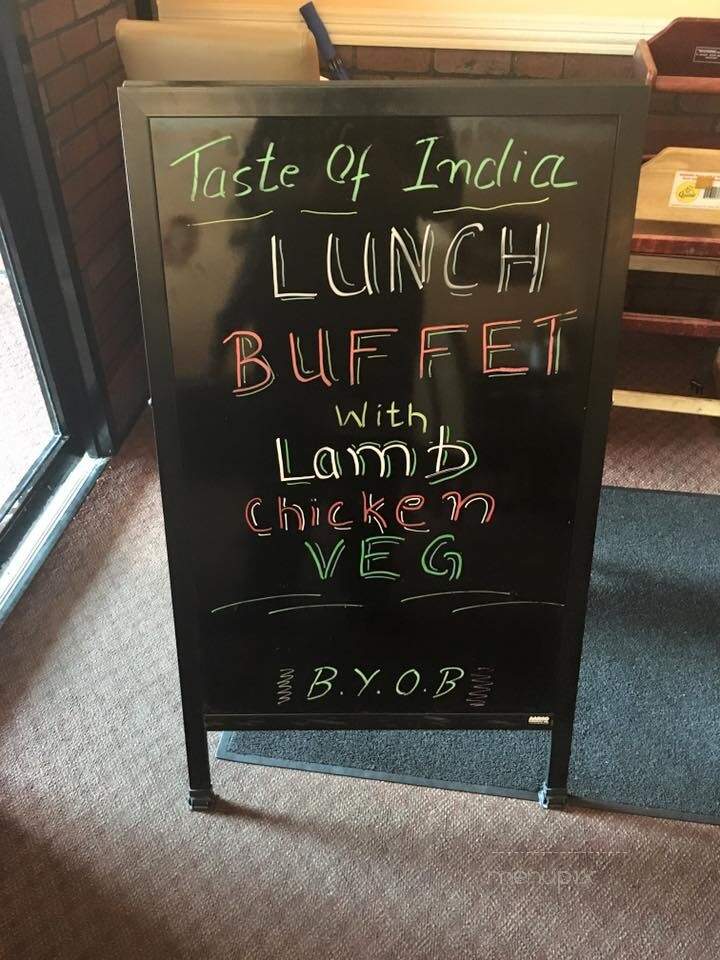 Taste Of India
LUNCH
BUFFET
With
Lamb
Chicken
VEG
B.Y.O.B
menupix